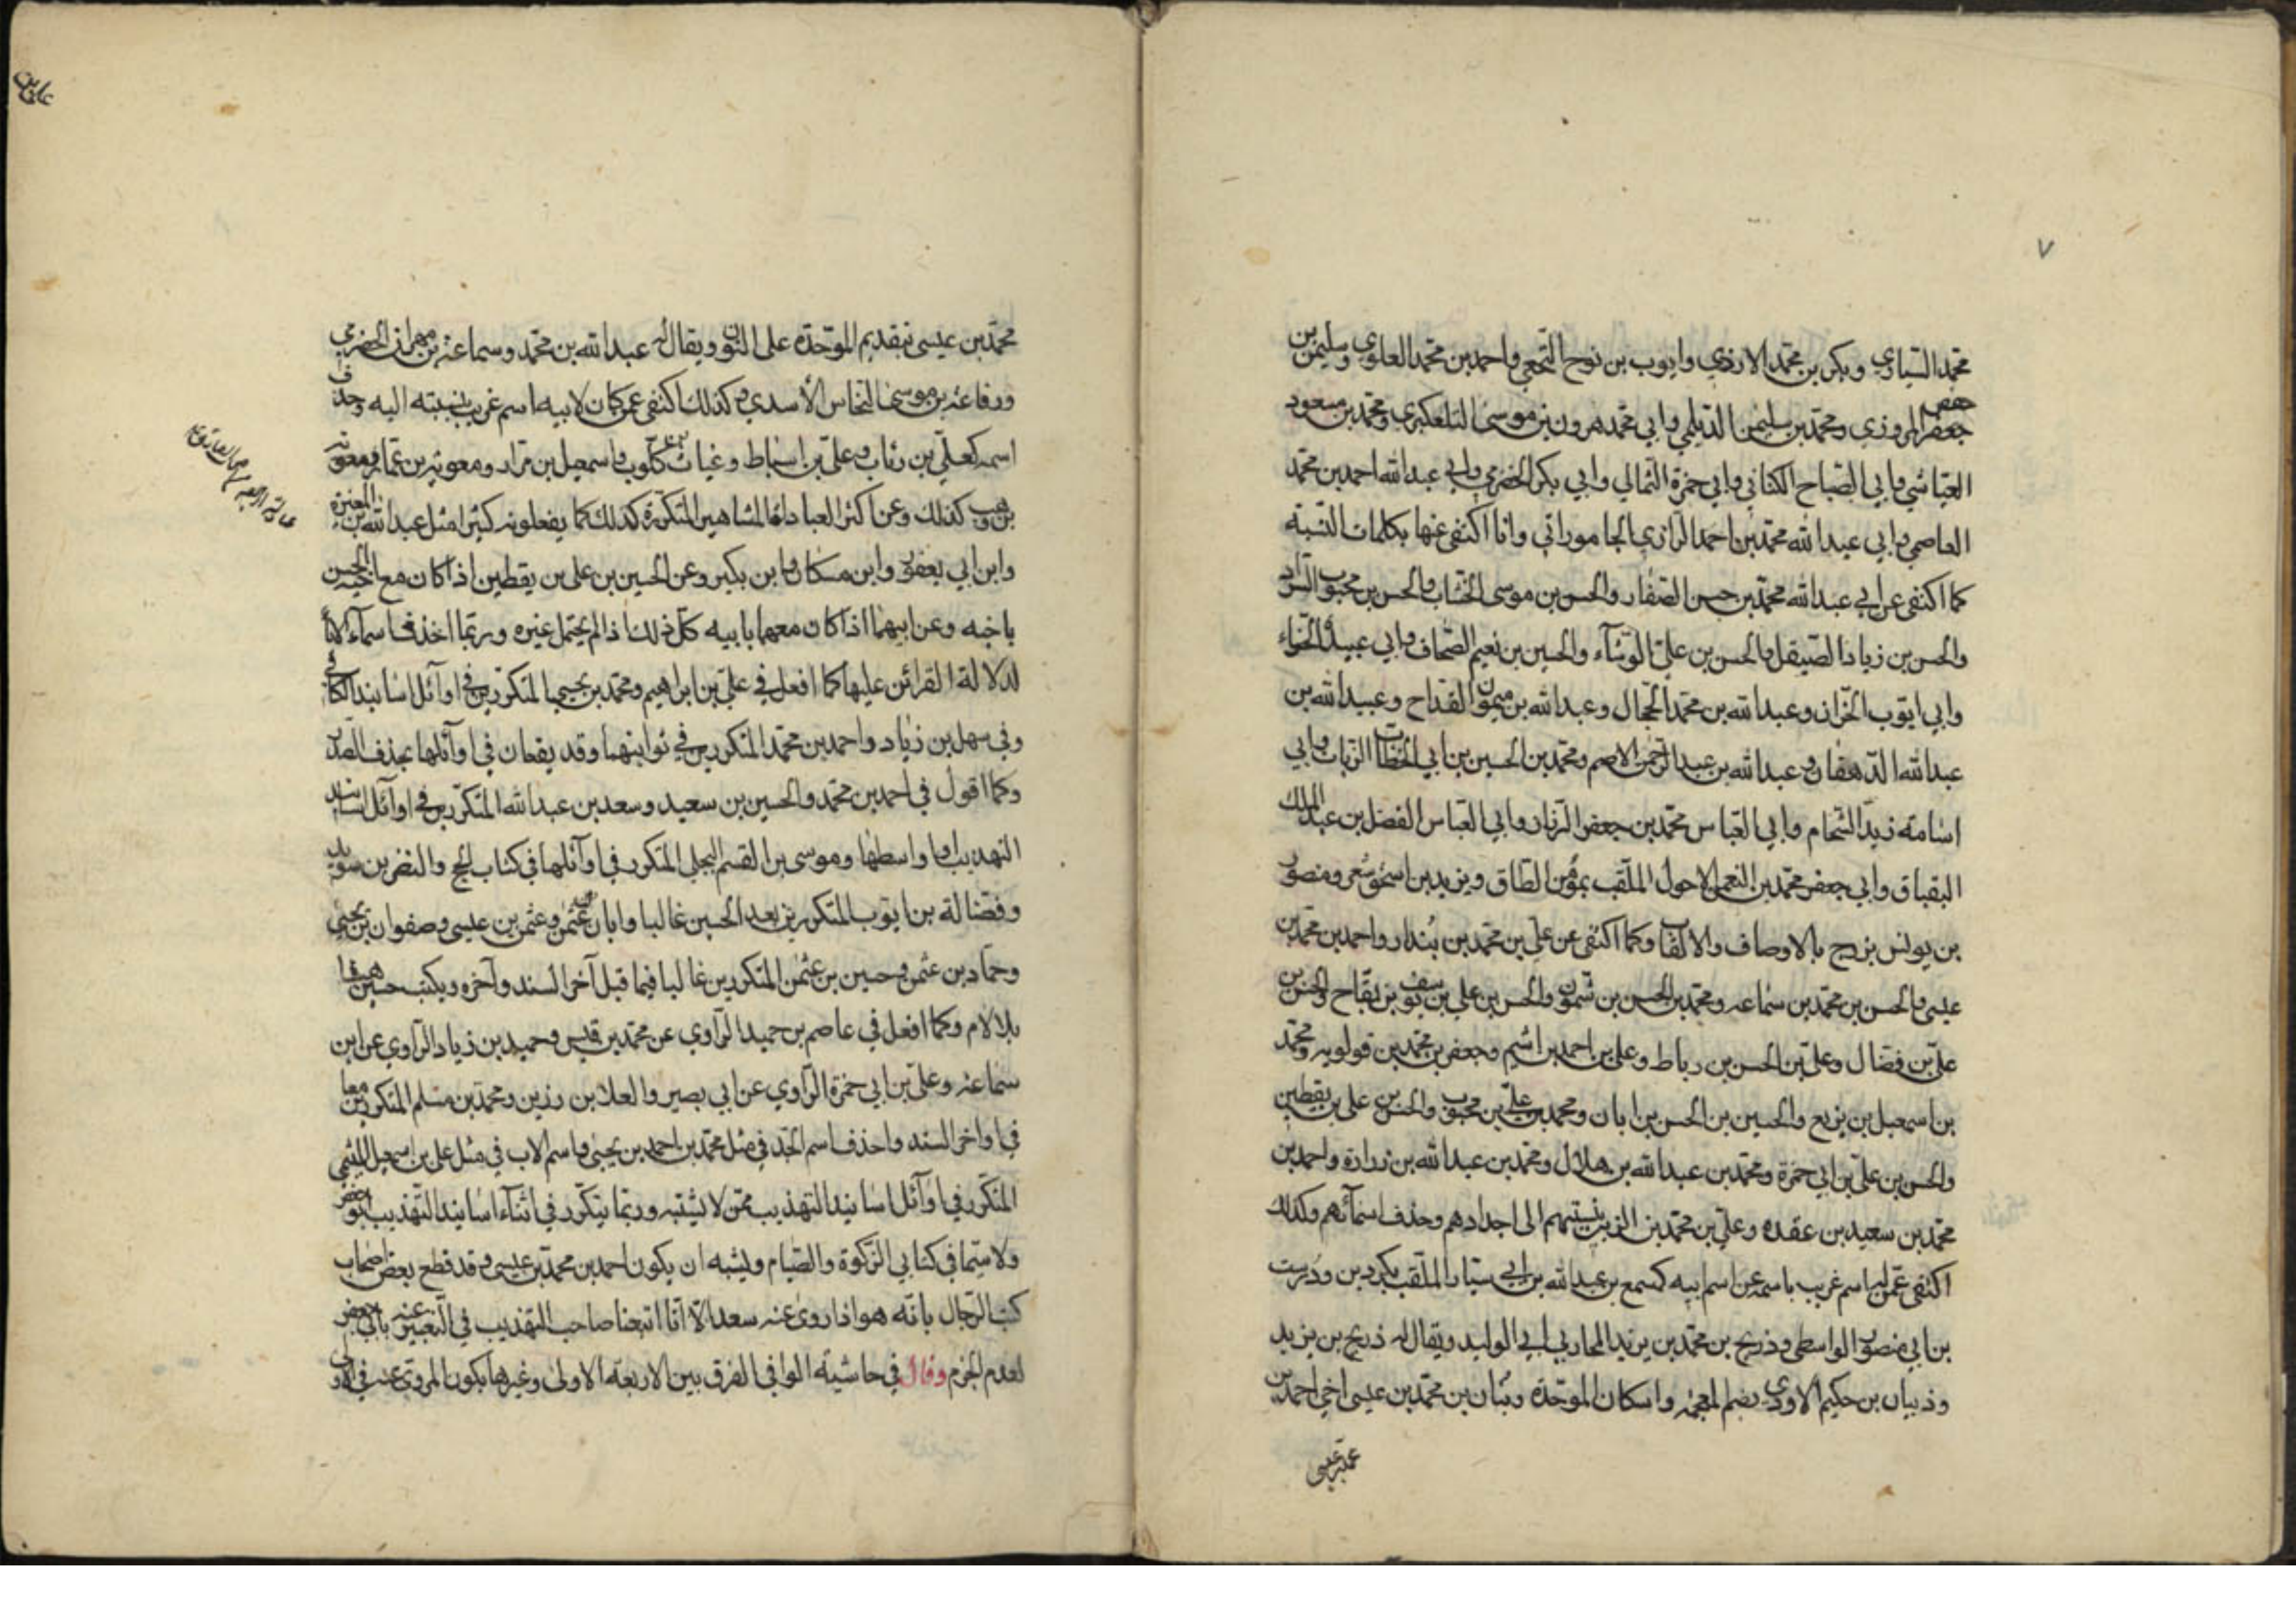 ٧
محمد السياري وبكر بن محمد الازدي وايوب بن نوح النخعي واحمد بن محمد العلوي وسليمن بن
حفص
جعفر المروزي ومحمد بن سليمن الديلمي وابي محمد هرون بن موسى التلعكبري ومحمد بن مسعود
العياشي وابي الصباح الكناني وابي حمزة الثمالي وابي بكر الحضرمي وابي عبد الله احمد بن محمد
العاصمي وابي عبد الله محمد بن احمد الرازي الجاموراني وانا اكتفى عنها بكلمات النسبة
كما اكتفى عن ابي عبد الله محمد بن حسن الصفار والحسن بن موسى الخشاب والحسن بن محبوب السراد
والحسن بن زياد الصيقل والحسن بن علي الوشآء والحسين بن نعيم الصحاف وابي عبيدة الحذاء
وابي ايوب الخزاز وعبد الله بن محمد الحجال وعبد الله بن ميمون القداح وعبيد الله بن
عبد الله الدهقان وعبد الله بن عبد الرحمن الاصم ومحمد بن الحسين بن ابي الخطاب الزيات وابي
اسامة زيد الشحام وابي العباس محمد بن جعفر الرزاز وابي العباس الفضل بن عبد الملك
البقباق وابي جعفر محمد بن النعمن الاحول الملقب بمؤمن الطاق ويزيد بن اسحق شعر ومنصور
بن يونس بزرج بالاوصاف والالقاب وكما اكتفى عن علي بن محمد بن بندار واحمد بن محمد بن
عيسى والحسن بن محمد بن سماعه ومحمد بن الحسن بن شمون والحسن بن علي بن يوسف بن بقاح والحسن بن
علي بن فضال وعلي بن الحسن بن رباط وعلي بن احمد بن اشيم وجعفر بن محمد بن قولويه ومحمد
بن اسمعيل بن بزيع والحسين بن الحسن بن ابان ومحمد بن علي بن محبوب والحسن بن علي بن يقطين
والحسن بن علي بن ابي حمزة ومحمد بن عبد الله بن هلال ومحمد بن عبد الله بن زرارة واحمد بن
محمد بن سعيد بن عقده وعلي بن محمد بن الزبير بنسبتهم الى اجدادهم وحذف اسمآئهم وكذلك
اكتفى عمن له اسم غريب باسمه عن اسم ابيه كمسمع بن عبد الله بن ابي سيار الملقب بكردين ودرست
بن ابي منصور الواسطي وذريح بن محمد بن يزيد المحاربي ابي الوليد ويقال له ذريح بن يزيد
وذبيان بن حكيم الاودي بضم المعجمة واسكان الموحدة وبنان بن محمد بن عيسى اخي احمد بن
محمد بن عيسى
محمد بن عيسى بتقديم الموحدة على النون ويقال له عبد الله بن محمد وسماعة بن مهران الحضرمي
ورفاعة بن موسى النخاس الأسدي وكذلك اكتفى عمن كان لابيه اسم غريب بنسبته اليه وحذف
اسمه كعلي بن رئاب وعلي بن اسباط وغياث بن كلوب واسمعيل بن مرار ومعوية بن عمار ومعوية
بن وهب كذلك وعن اكثر العبادلة المشاهير المتكررة كذلك كما يفعلونه كثيرا مثل عبد الله بن المغيرة
وابن ابي يعفور وابن مسكان وابن بكير وعن الحسين بن علي بن يقطين اذا كان مع اخيه الحسن
باخيه وعن ابيهما اذا كان معهما بابيه كل ذلك اذا لم يحتمل غيره وربما احذف اسمآء الآبا
لدلالة القرائن عليها كما افعل في علي بن ابراهيم ومحمد بن يحيى المتكررين في اوآئل اسانيد الكافي
وفي سهل بن زياد واحمد بن محمد المتكررين في ثوانيهما وقد يقعان في اوآئلها بحذف الصدر
وكما اقول في احمد بن محمد والحسين بن سعيد وسعد بن عبد الله المتكررين في اوآئل اسانيد
التهذيب او اواسطها وموسى بن القسم البجلي المتكرر في اوآئلها في كتاب الحج والنضر بن سويد
وفضالة بن ايوب المتكررين بعد الحسين غالبا وابان بن عثمن وعثمن بن عيسى وصفوان بن يحيى
وحماد بن عثمن وحسين بن عثمن المتكررين غالبا فيما قبل آخر السند وآخره ويكتب حسين هذا
بلا لام وكما افعل في عاصم بن حميد الراوي عن محمد بن قيس وحميد بن زياد الراوي عن ابن
سماعة وعلي بن ابي حمزة الراوي عن ابي بصير والعلا بن رزين ومحمد بن مسلم المتكررين معا
في اواخر السند واحذف اسم الجد في مثل محمد بن احمد بن يحيى واسم الاب في مثل علي بن اسمعيل الميثمي
المتكرر في اوآئل اسانيد التهذيب ممن لا يشتبه وربما يتكرر في اثناء اسانيد التهذيب ابو جعفر
ولا سيما في كتابي الزكوة والصيام ويشبه ان يكون احمد بن محمد بن عيسى وقد قطع بعض اصحاب
كتب الرجال بانه هو اذا روى عنه سعد الا انا اتبعنا صاحب التهذيب في التعبير عنه بابي جعفر
لعدم الجزم وقال في حاشية الوافي الفرق بين الاربعة الاولى وغيرها بكون المروي عنه في الاولى